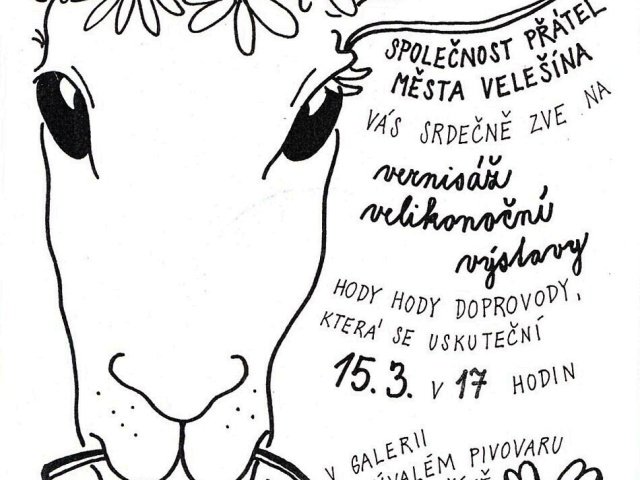 SPOLEČNOST PŘÁTEL
MĚSTA VELEŠÍNA
VÁS SRDEČNĚ ZVE NA
vernisáž
velikonoční
výstavy
HODY HODY DOPROVODY,
KTERÁ SE USKUTEČNÍ
15.3. V 17 HODIN
V GALERII
PIVOVARU